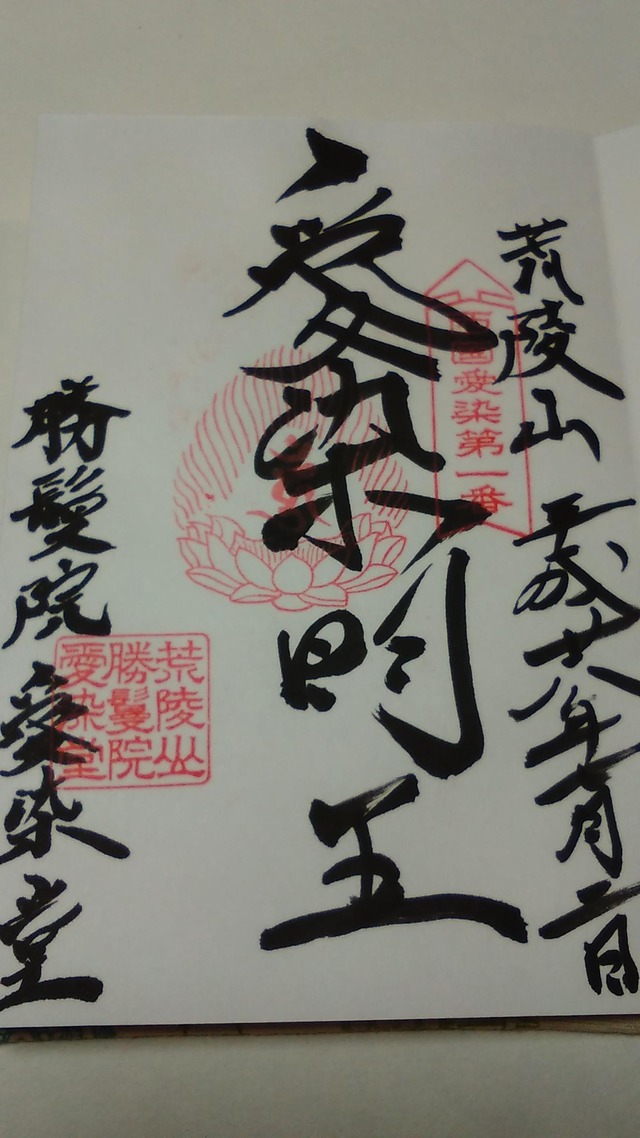 荒陵山 平成廿八年一月二日
西國愛染第一番
愛染明王
荒陵山
勝鬘院
愛染堂
勝鬘院 愛染堂